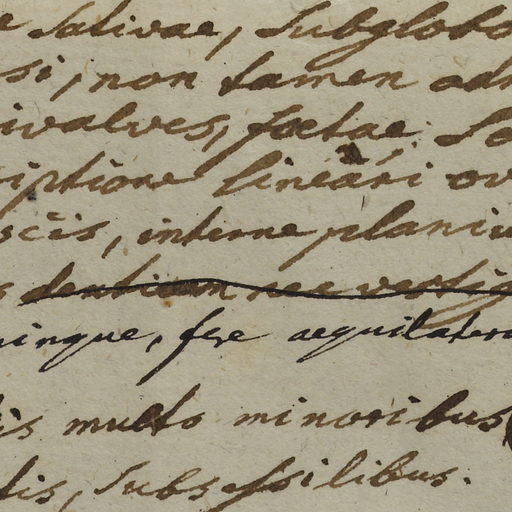 e sativae, subglobo
si, non tamen adn
ivalves, foetae. Se
iptione lineari ov
scis, interne planiu
s dentium nec vestig
uinque, fere aequilatera
is multo minoribus
tis, subsessilibus.